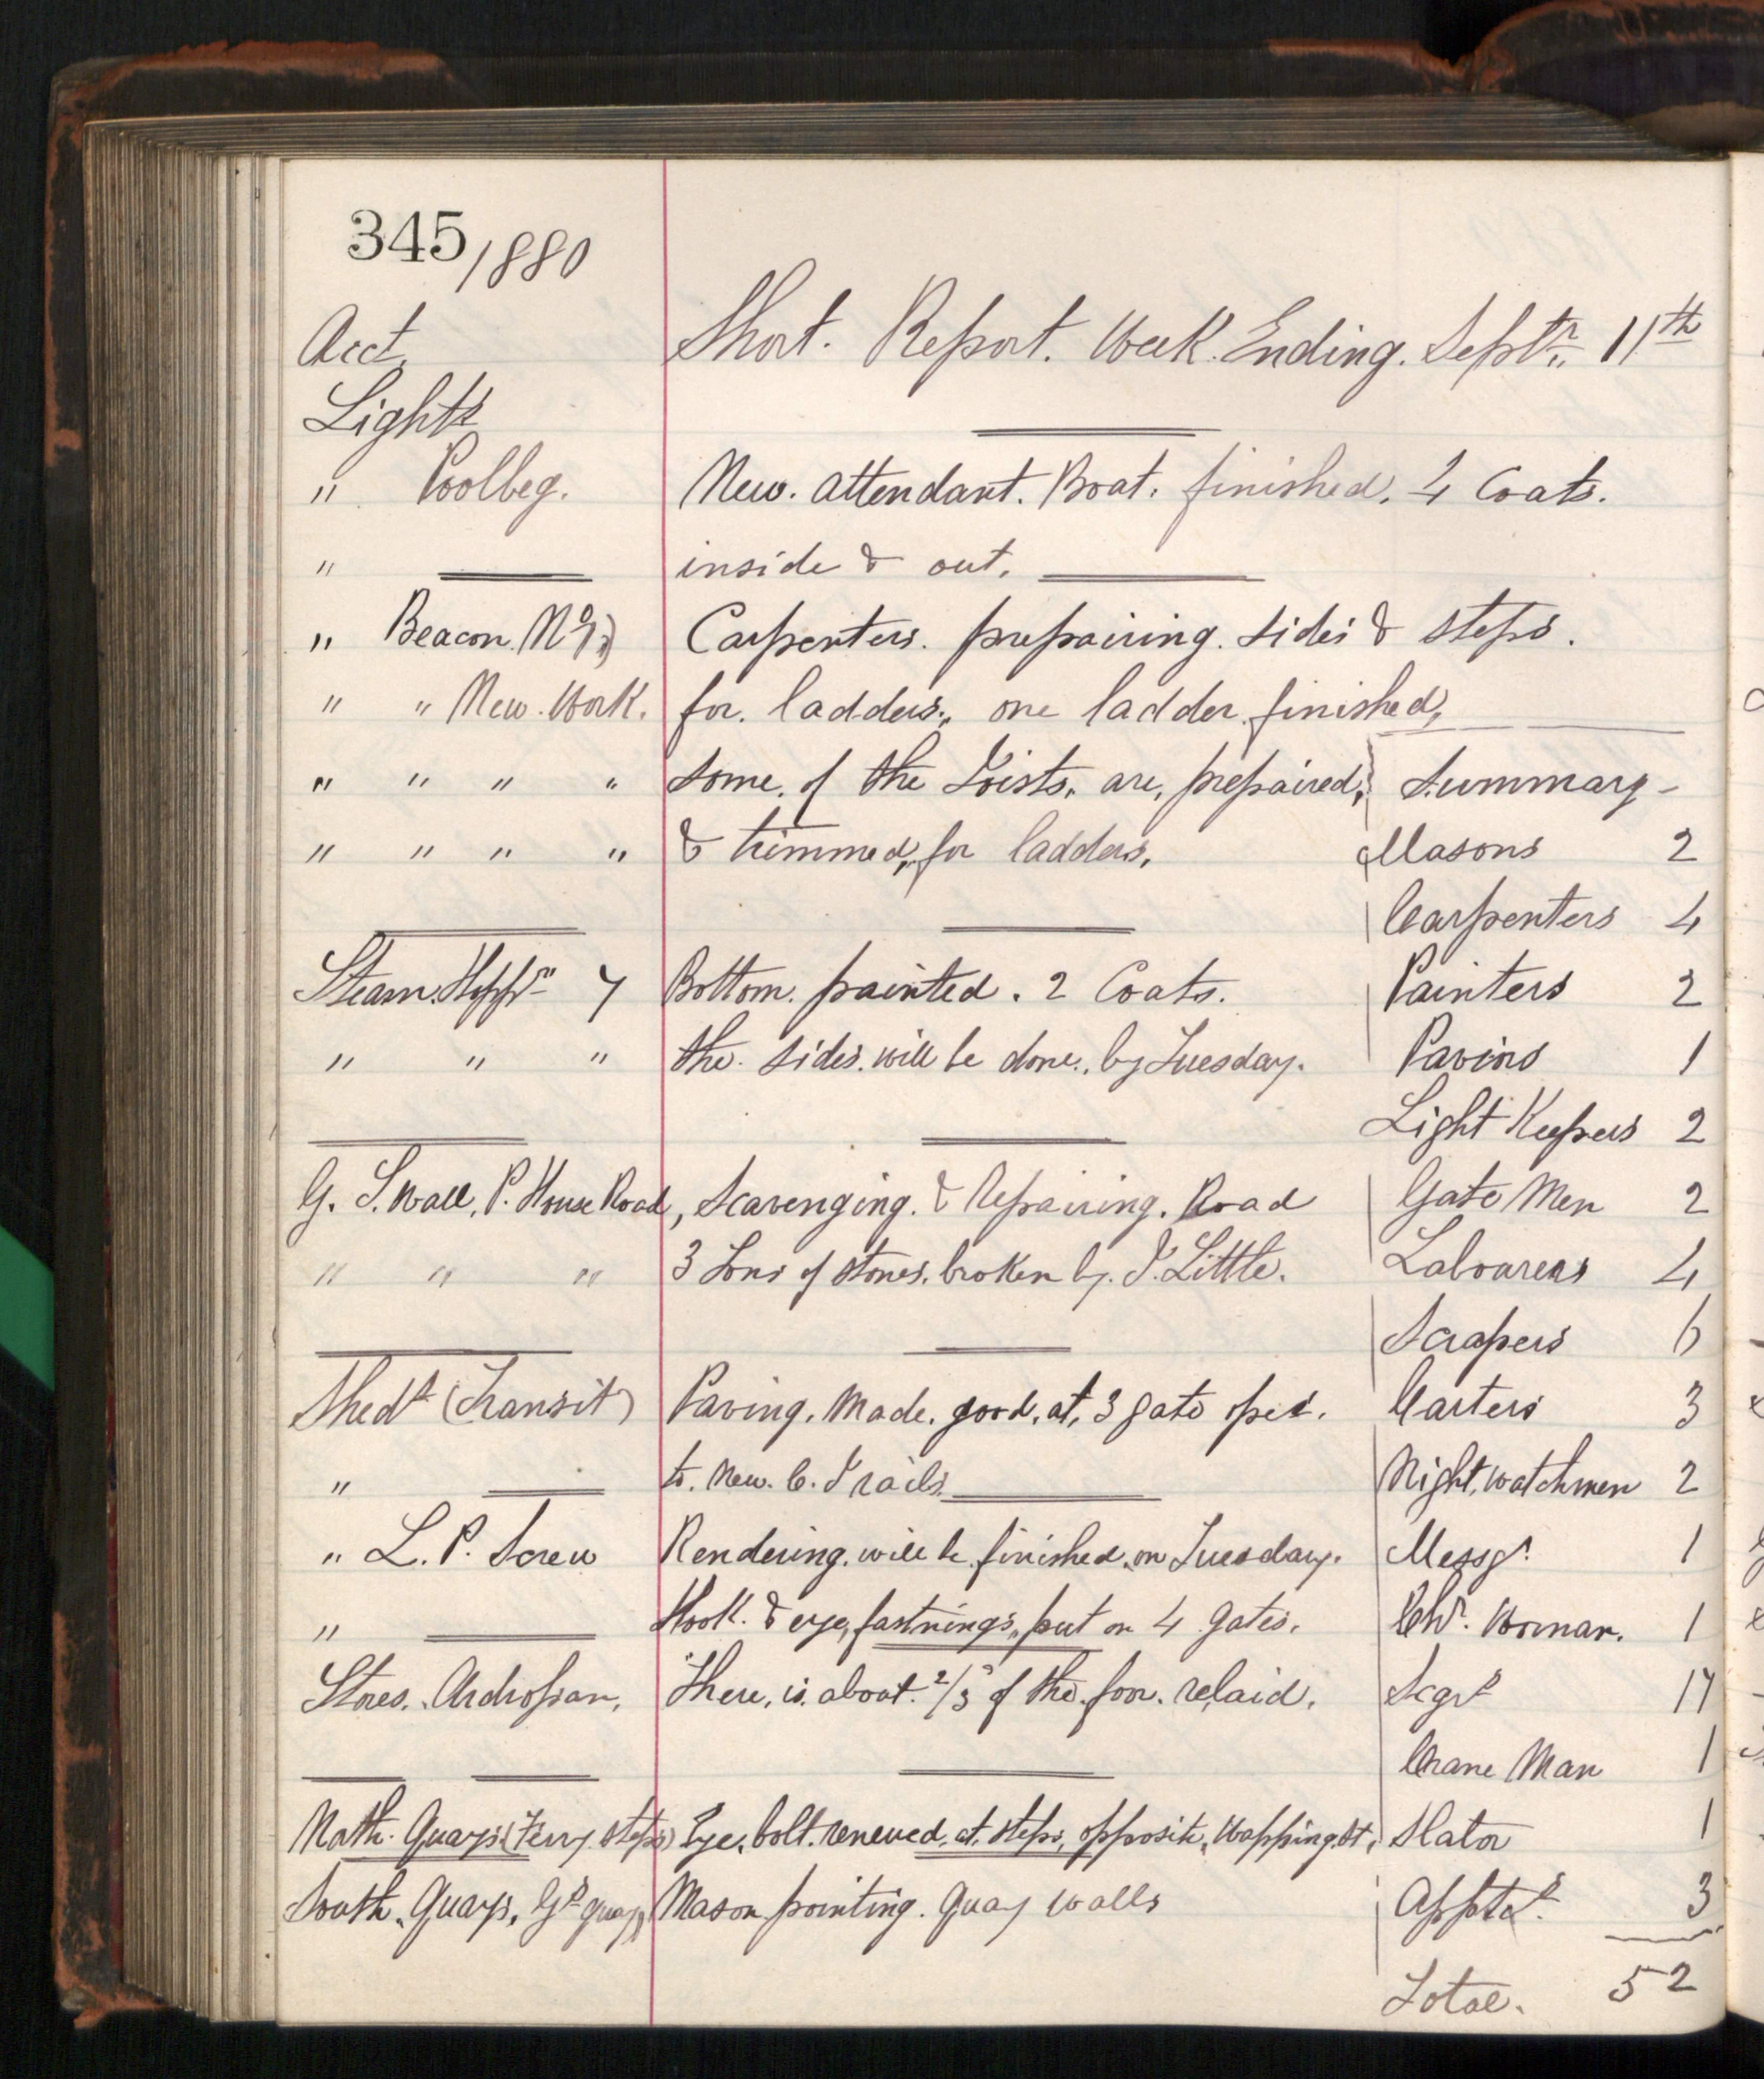 345/1880
Acct. Short. Report. Week. Ending. Septr. 11th
Lights
" Poolbeg. New. attendant. Boat. finished. 4 Coats.
" inside & out.
" Beacon. N Carpenters. prepairing. sides & steps.
" " New. Work. for. ladders., one ladder. finished,
" " " " Some. of the Joists. are, prepaired, Summary -
" " " " & trimmed, for ladders, Masons 2
Carpenters 4
Steam. Hoppr 7 Bottom. painted. 2 Coats. Painters 2
" " " the. sides. will be done. by Tuesday. Paviors 1
Light Keepers 2
G. S. Wall, P. House Road, Scavenging. & Repairing. Road Gate Men 2
" " " 3 Tons of stones. broken by. J. Little. Labourers 4
Scrapers 6
Sheds (Transit) Paving. Made. good. at, 3 gate opes. Carters 3
" to. New. C. I rails. Night. watchmen 2
" L. P. Screw Rendering. will be. finished. on Tuesday. Messgr. 1
" Hook. & eye, fastnings, put on 4 gates. Chr. Woman. 1
Stores. Ardrossan, There, is. about. 2/3 of the. floor. relaid. Scgrs 17
Crane Man 1
North. Quays (Ferry steps) Eye. bolt. renewed. at. steps, opposite, Wapping. St, Slator 1
South. Quays, Gt quay, Mason pointing. Quay walls Apptes. 3
Total. 52